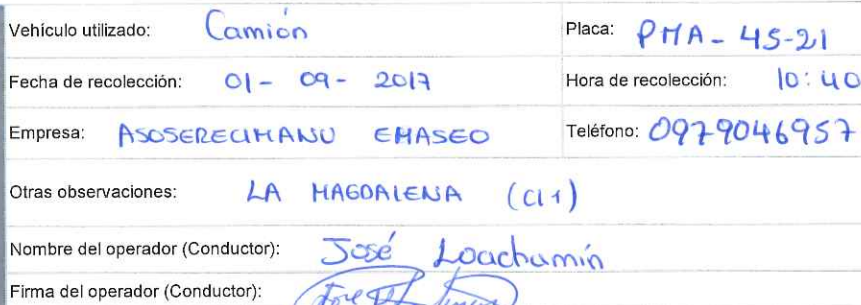 Vehículo utilizado: Camión Placa: PMA - 45-21
Fecha de recolección: 01 - 09 - 2017 Hora de recolección: 10:40
Empresa: ASOSERECLIMANU EMASEO Teléfono: 0979046957
Otras observaciones: LA MAGDALENA (CI 1)
Nombre del operador (Conductor): José Loachamín
Firma del operador (Conductor):